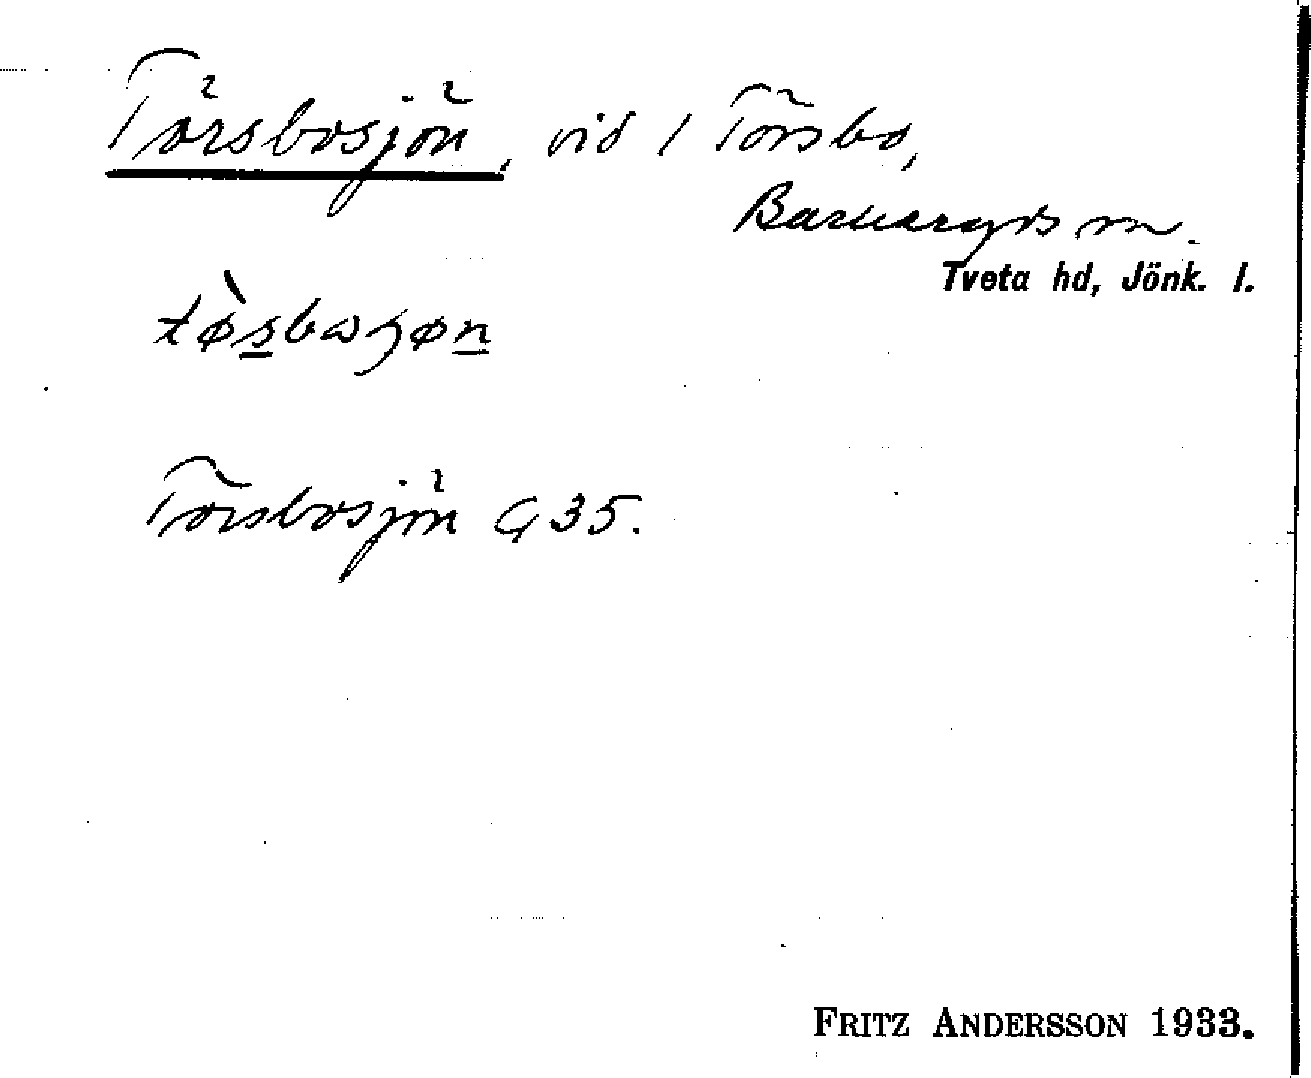 Törsbosjön, vid 1 Törsbo,
Barkeryds sn.
Tveta hd, Jönk. l.
tø̀s̲bωʃøn̲
Törsbosjön G 35.
FRITZ ANDERSSON 1933.